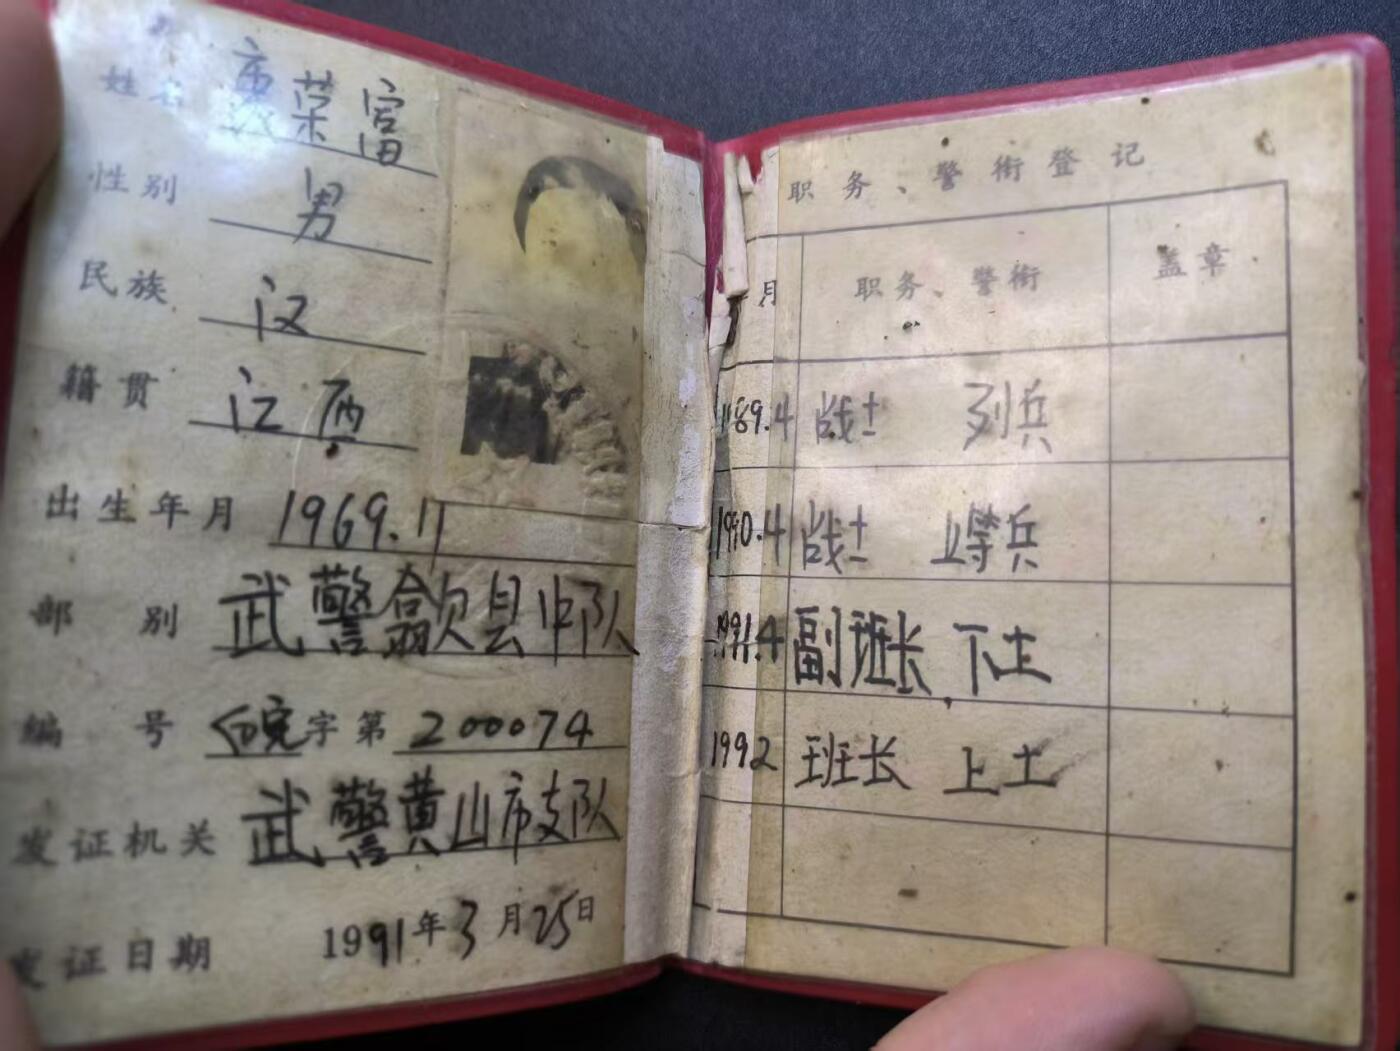 姓名 荣富
性别 男
民族 汉
籍贯 江西
出生年月 1969.11
部别 武警歙县中队
编号 皖字第200074
发证机关 武警黄山市支队
发证日期 1991年3月25日
职务、警衔登记
月 职务、警衔 盖章
1989.4 战士 列兵
1990.4 战士 上等兵
1991.4 副班长 下士
1992 班长 上士